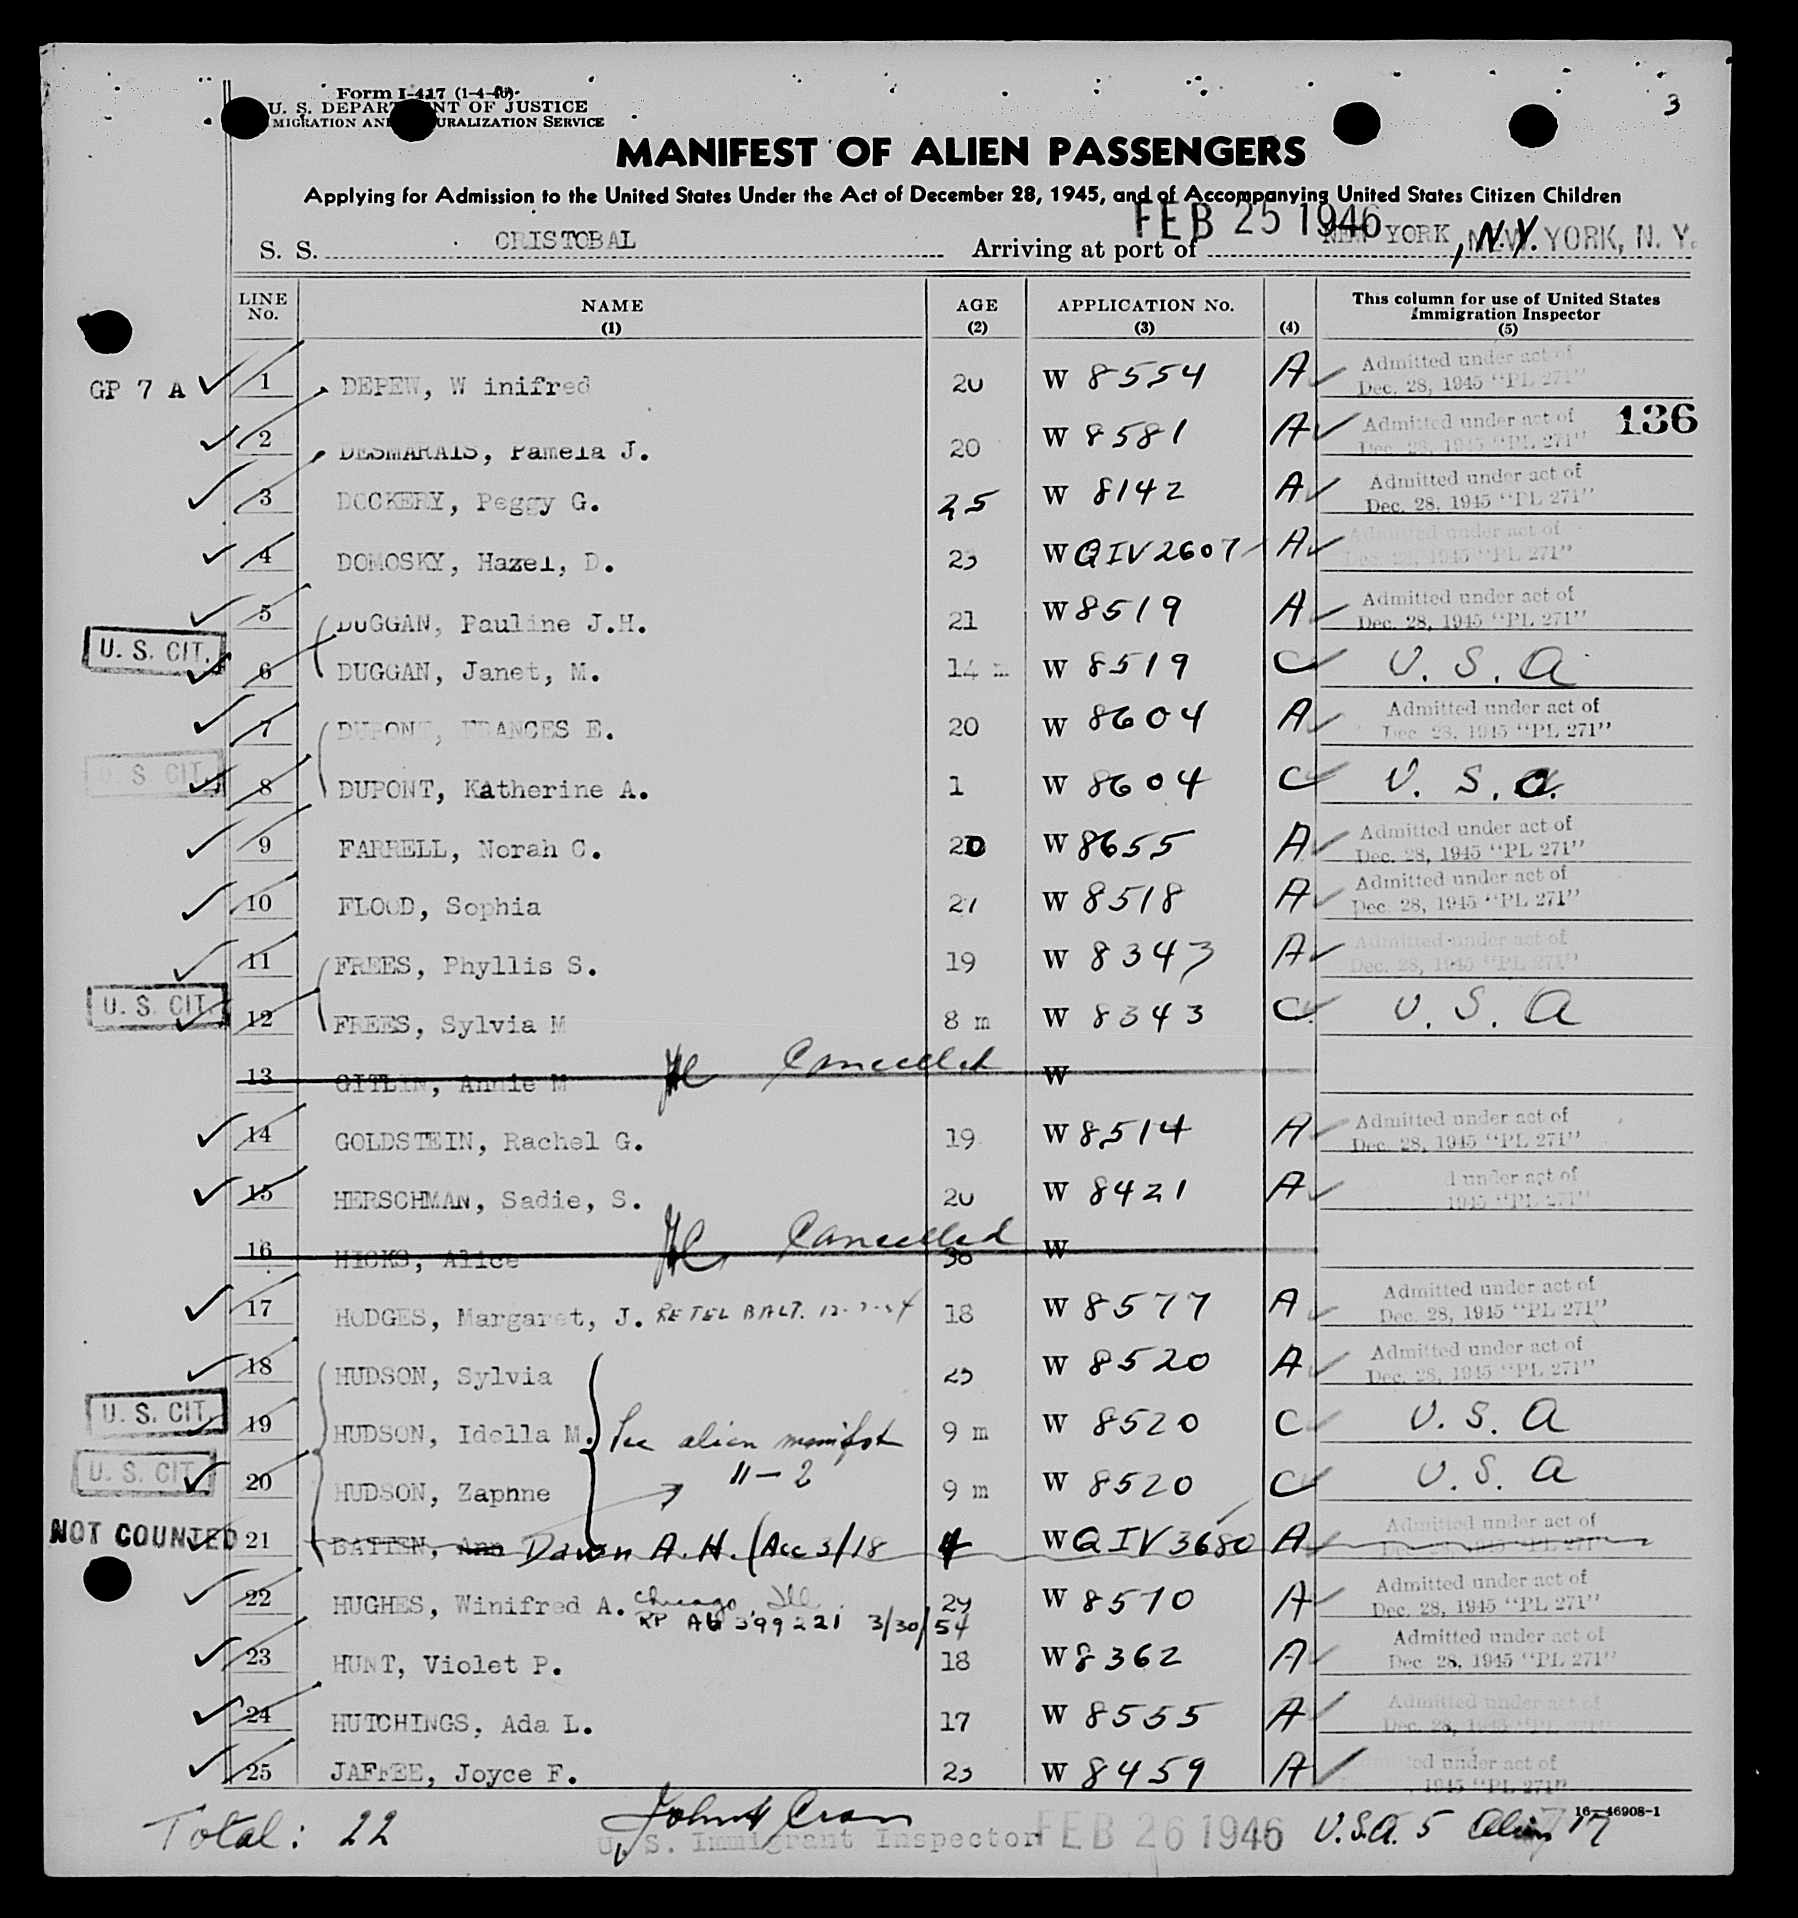 3
Form I-417 (1-4-46)
U. S. DEPARTMENT OF JUSTICE
IMMIGRATION AND NATURALIZATION SERVICE
MANIFEST OF ALIEN PASSENGERS
Applying for Admission to the United States Under the Act of December 28, 1945, and of Accompanying United States Citizen Children
FEB 25 1946
S. S. CRISTOBAL Arriving at port of NEW YORK, N.Y. YORK, N. Y.
LINE No. NAME (1) AGE (2) APPLICATION No. (3) (4) This column for use of United States Immigration Inspector (5)
GP 7 A 1 DEPEW, W inifred 20 W 8554 A Admitted under act of Dec. 28, 1945 "PL 271"
136
2 DESMARAIS, Pamela J. 20 W 8581 A Admitted under act of Dec. 28, 1945 "PL 271"
3 DOCKERY, Peggy G. 25 W 8142 A Admitted under act of Dec. 28, 1945 "PL 271"
4 DOMOSKY, Hazel, D. 23 W QIV2607 A Admitted under act of Dec. 28, 1945 "PL 271"
5 DUGGAN, Pauline J.H. 21 W 8519 A Admitted under act of Dec. 28, 1945 "PL 271"
U. S. CIT. 6 DUGGAN, Janet, M. 14 m W 8519 C U. S. A
7 DUPONT, FRANCES E. 20 W 8604 A Admitted under act of Dec. 28, 1945 "PL 271"
U. S. CIT. 8 DUPONT, Katherine A. 1 W 8604 C U. S. A.
9 FARRELL, Norah C. 20 W 8655 A Admitted under act of Dec. 28, 1945 "PL 271"
10 FLOOD, Sophia 21 W 8518 A Admitted under act of Dec. 28, 1945 "PL 271"
11 FREES, Phyllis S. 19 W 8343 A Admitted under act of Dec. 28, 1945 "PL 271"
U. S. CIT. 12 FREES, Sylvia M 8 m W 8343 C U. S. A
13 GITLIN, Annie M Cancelled W
14 GOLDSTEIN, Rachel G. 19 W 8514 A Admitted under act of Dec. 28, 1945 "PL 271"
15 HERSCHMAN, Sadie, S. 20 W 8421 A d under act of 1945 "PL 271"
16 HICKS, Alice Cancelled 30 W
17 HODGES, Margaret, J. RE TEL BALT. 18 W 8577 A Admitted under act of Dec. 28, 1945 "PL 271"
18 HUDSON, Sylvia 23 W 8520 A Admitted under act of Dec. 28, 1945 "PL 271"
U. S. CIT. 19 HUDSON, Idella M. See alien manifest 9 m W 8520 C U. S. A
U. S. CIT. 20 HUDSON, Zaphne 11-2 9 m W 8520 C U. S. A
NOT COUNTED 21 BATTEN, Ann Dawn A. H. (Acc 3/18 4 W QIV3680 A Admitted under act of Dec. 28, 1945 "PL 271"
22 HUGHES, Winifred A. Chicago Ill. 24 W 8570 A Admitted under act of Dec. 28, 1945 "PL 271"
RP AU 399221 3/30/54
23 HUNT, Violet P. 18 W 8362 A Admitted under act of Dec. 28, 1945 "PL 271"
24 HUTCHINGS, Ada L. 17 W 8555 A Admitted under act of Dec. 28, 1945 "PL 271"
25 JAFFEE, Joyce F. 23 W 8459 A Admitted under act of 1945 "PL 271"
16-46908-1
Total: 22 U. S. Immigrant Inspector FEB 26 1946 U.S.A. 5 Alien 17